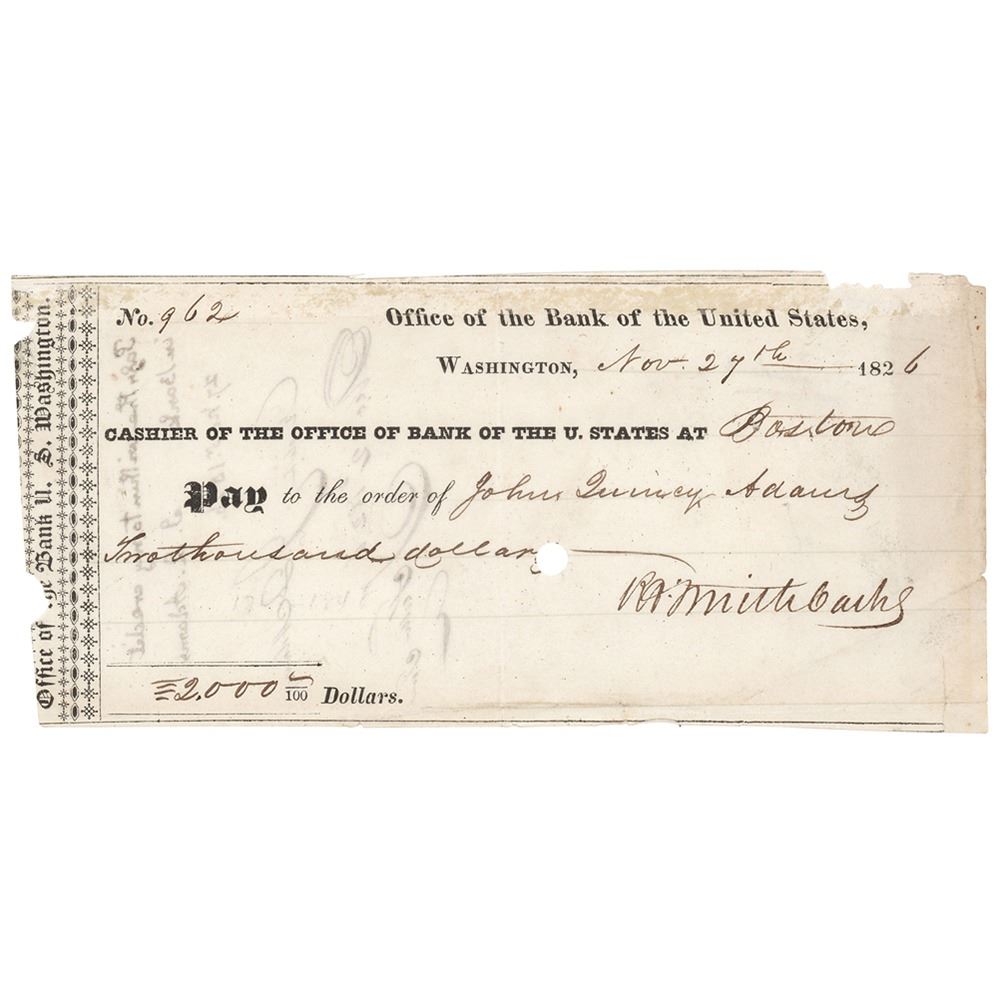 Office of the Bank U. S. Washington.
No. 962
Office of the Bank of the United States,
Washington, Nov. 27th 1826
CASHIER OF THE OFFICE OF BANK OF THE U. STATES AT Boston
Pay to the order of John Quincy Adams
Two thousand dollars
Rd. Smith Cashr
2,000 /100 Dollars.